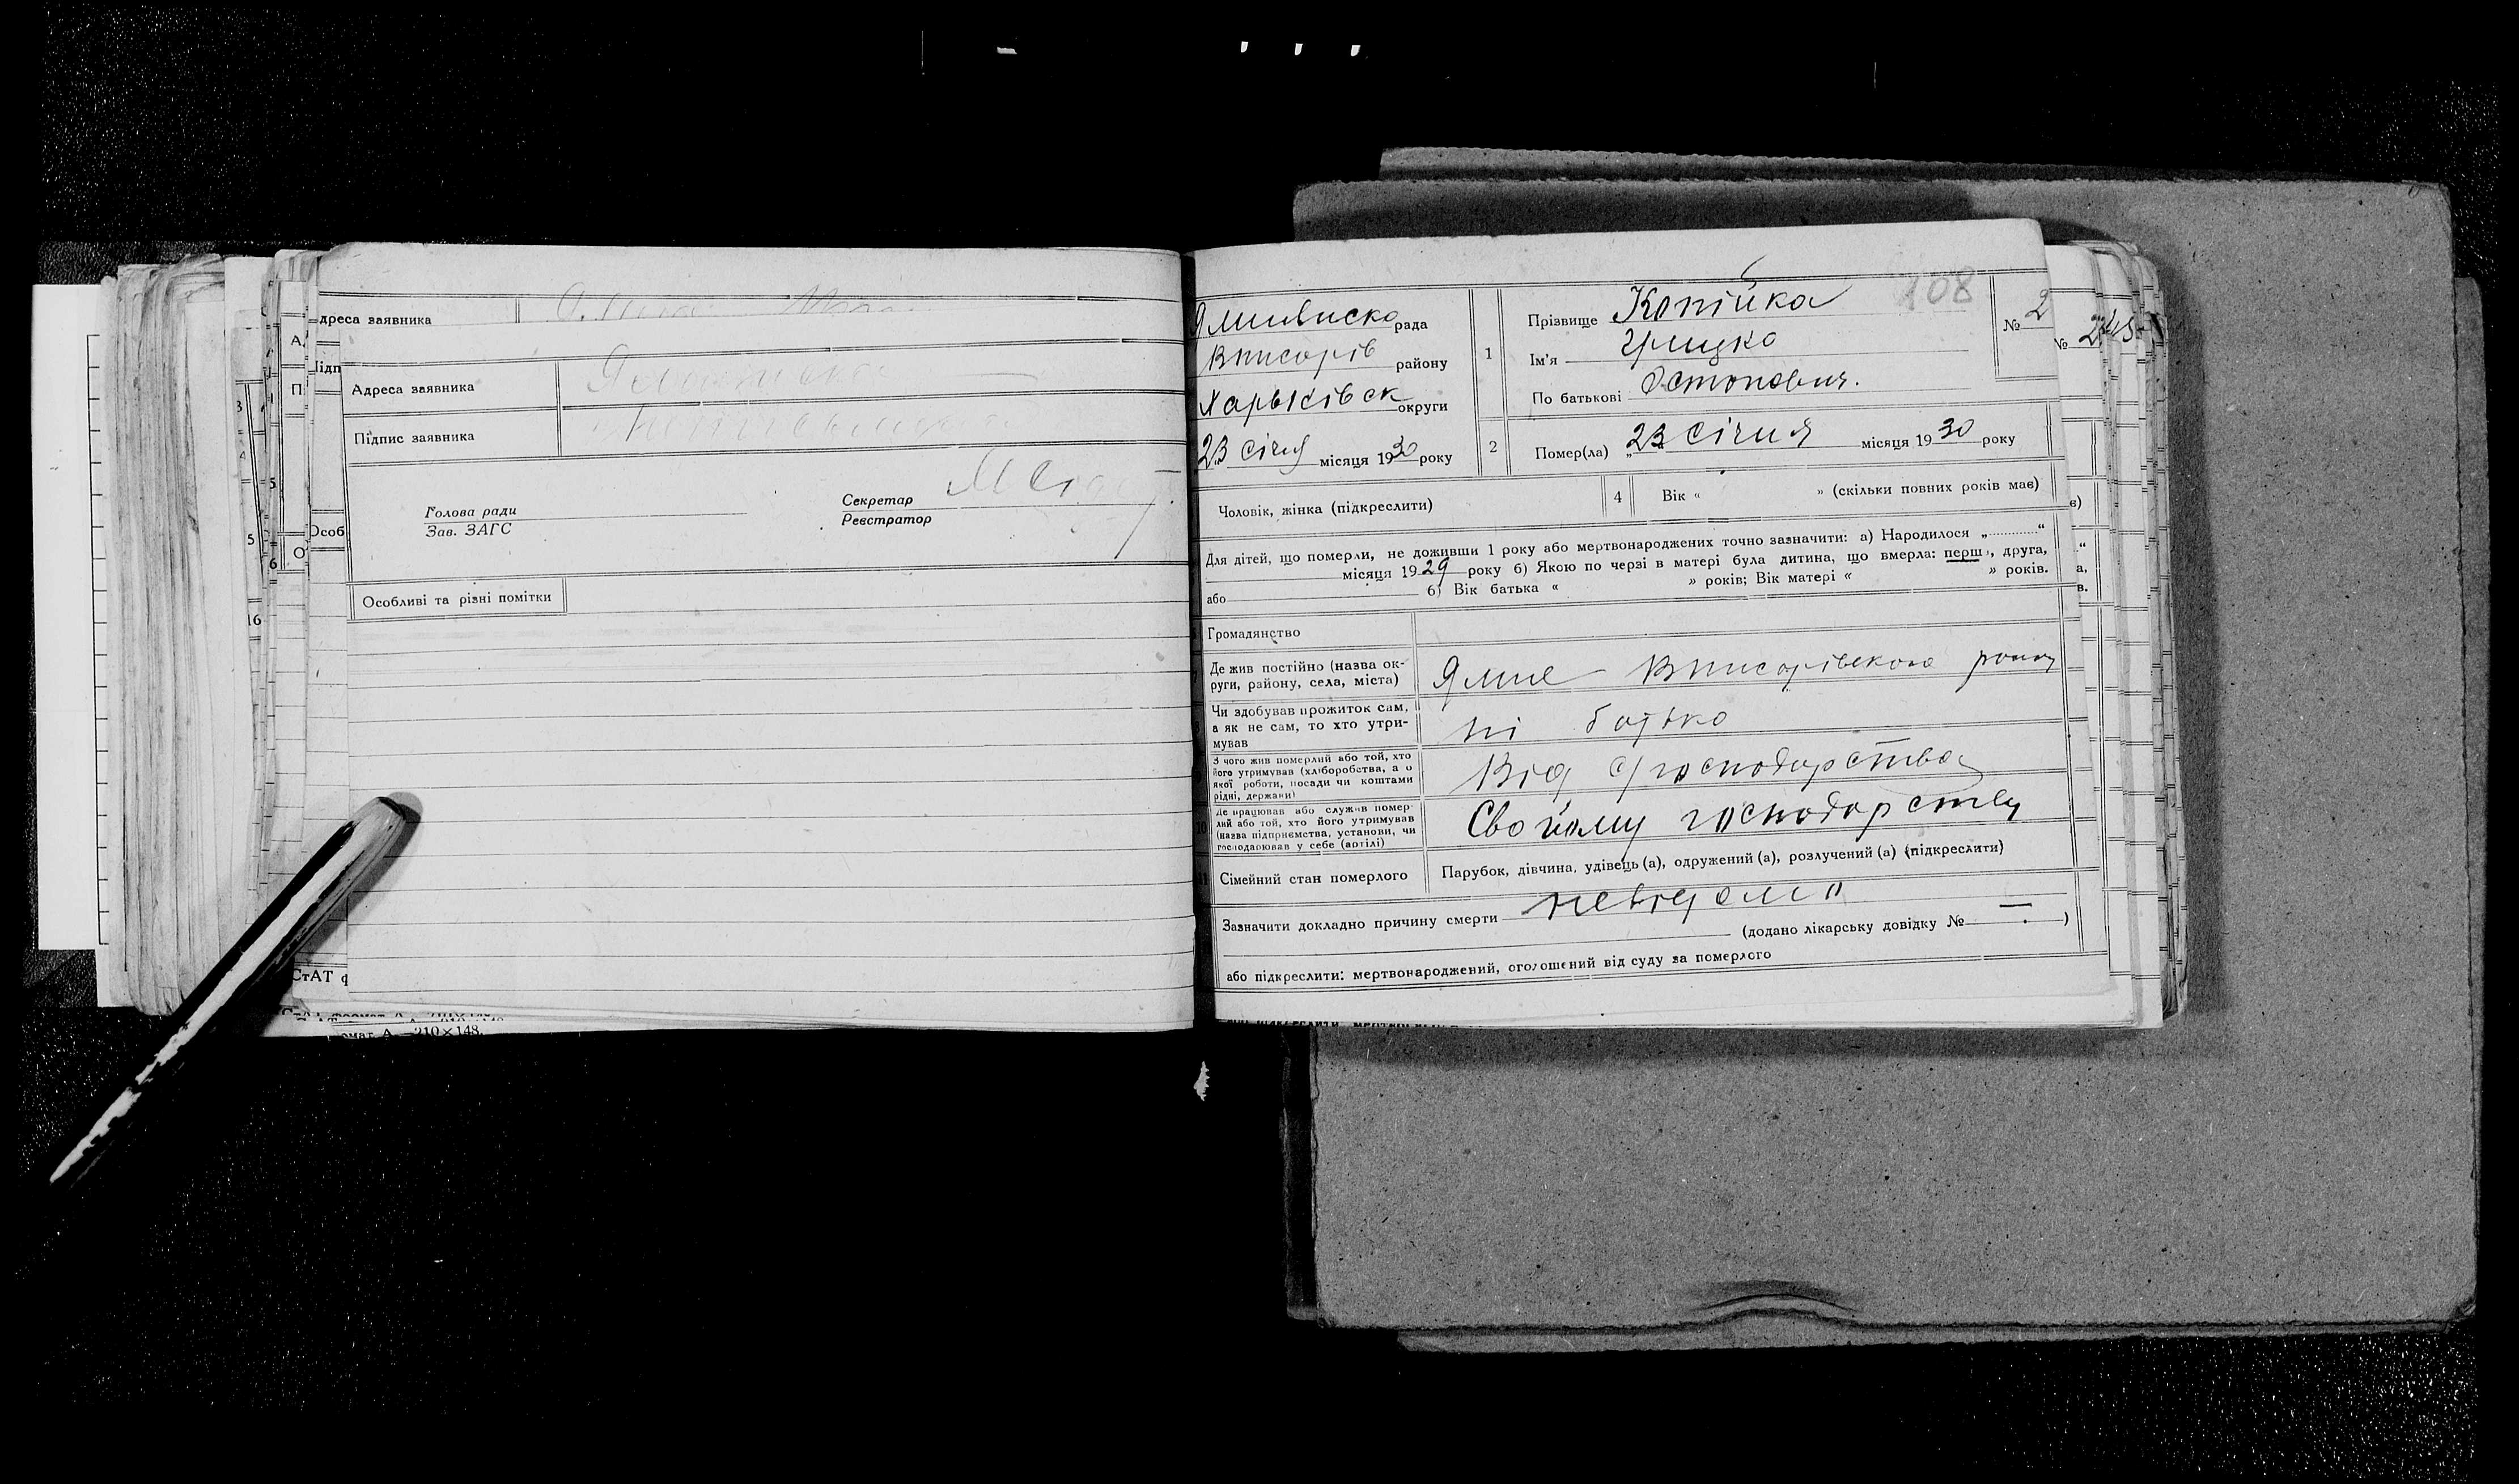 дреса заявника
Адреса заявника
Підпис заявника
Секретар
Голова ради
Реєстратор
Зав. ЗАГС
Особливі та різні помітки
СтАТ ф
210×148.
рада
району
Харьківск округи
23 січня місяця 1930 року
108
1 Прізвище Копійка
№ 2
Ім'я Грицко
По батькові Остапович.
2 Помер(ла) „23 січня місяця 1930 року
Чоловік, жінка (підкреслити)
4 Вік « » (скільки повних років має)
Для дітей, що померли, не доживши 1 року або мертвонароджених точно зазначити: а) Народилося „............“
місяця 1929 року б) Якою по черзі в матері була дитина, що вмерла: перш , друга,
або б) Вік батька « » років; Вік матері « » років.
Громадянство
Де жив постійно (назва ок-
руги, району, села, міста)
Ямне
Чи здобував прожиток сам,
а як не сам, то хто утри-
мував
ні батько
З чого жив померлий або той, хто
його утримував (хліборобства, а о
якої роботи, посади чи коштами
рідні, держави)
Від с/господарства
Де працював або служив помер-
лий або той, хто його утримував
(назва підприємства, установи, чи
господарював у себе (артілі)
Свойому господарству
Сімейний стан померлого
Парубок, дівчина, удівець (а), одружений (а), розлучений (а) (підкреслити)
Зазначити докладно причину смерти невідомо
(додано лікарську довідку № — )
або підкреслити: мертвонароджений, оголошений від суду за померлого